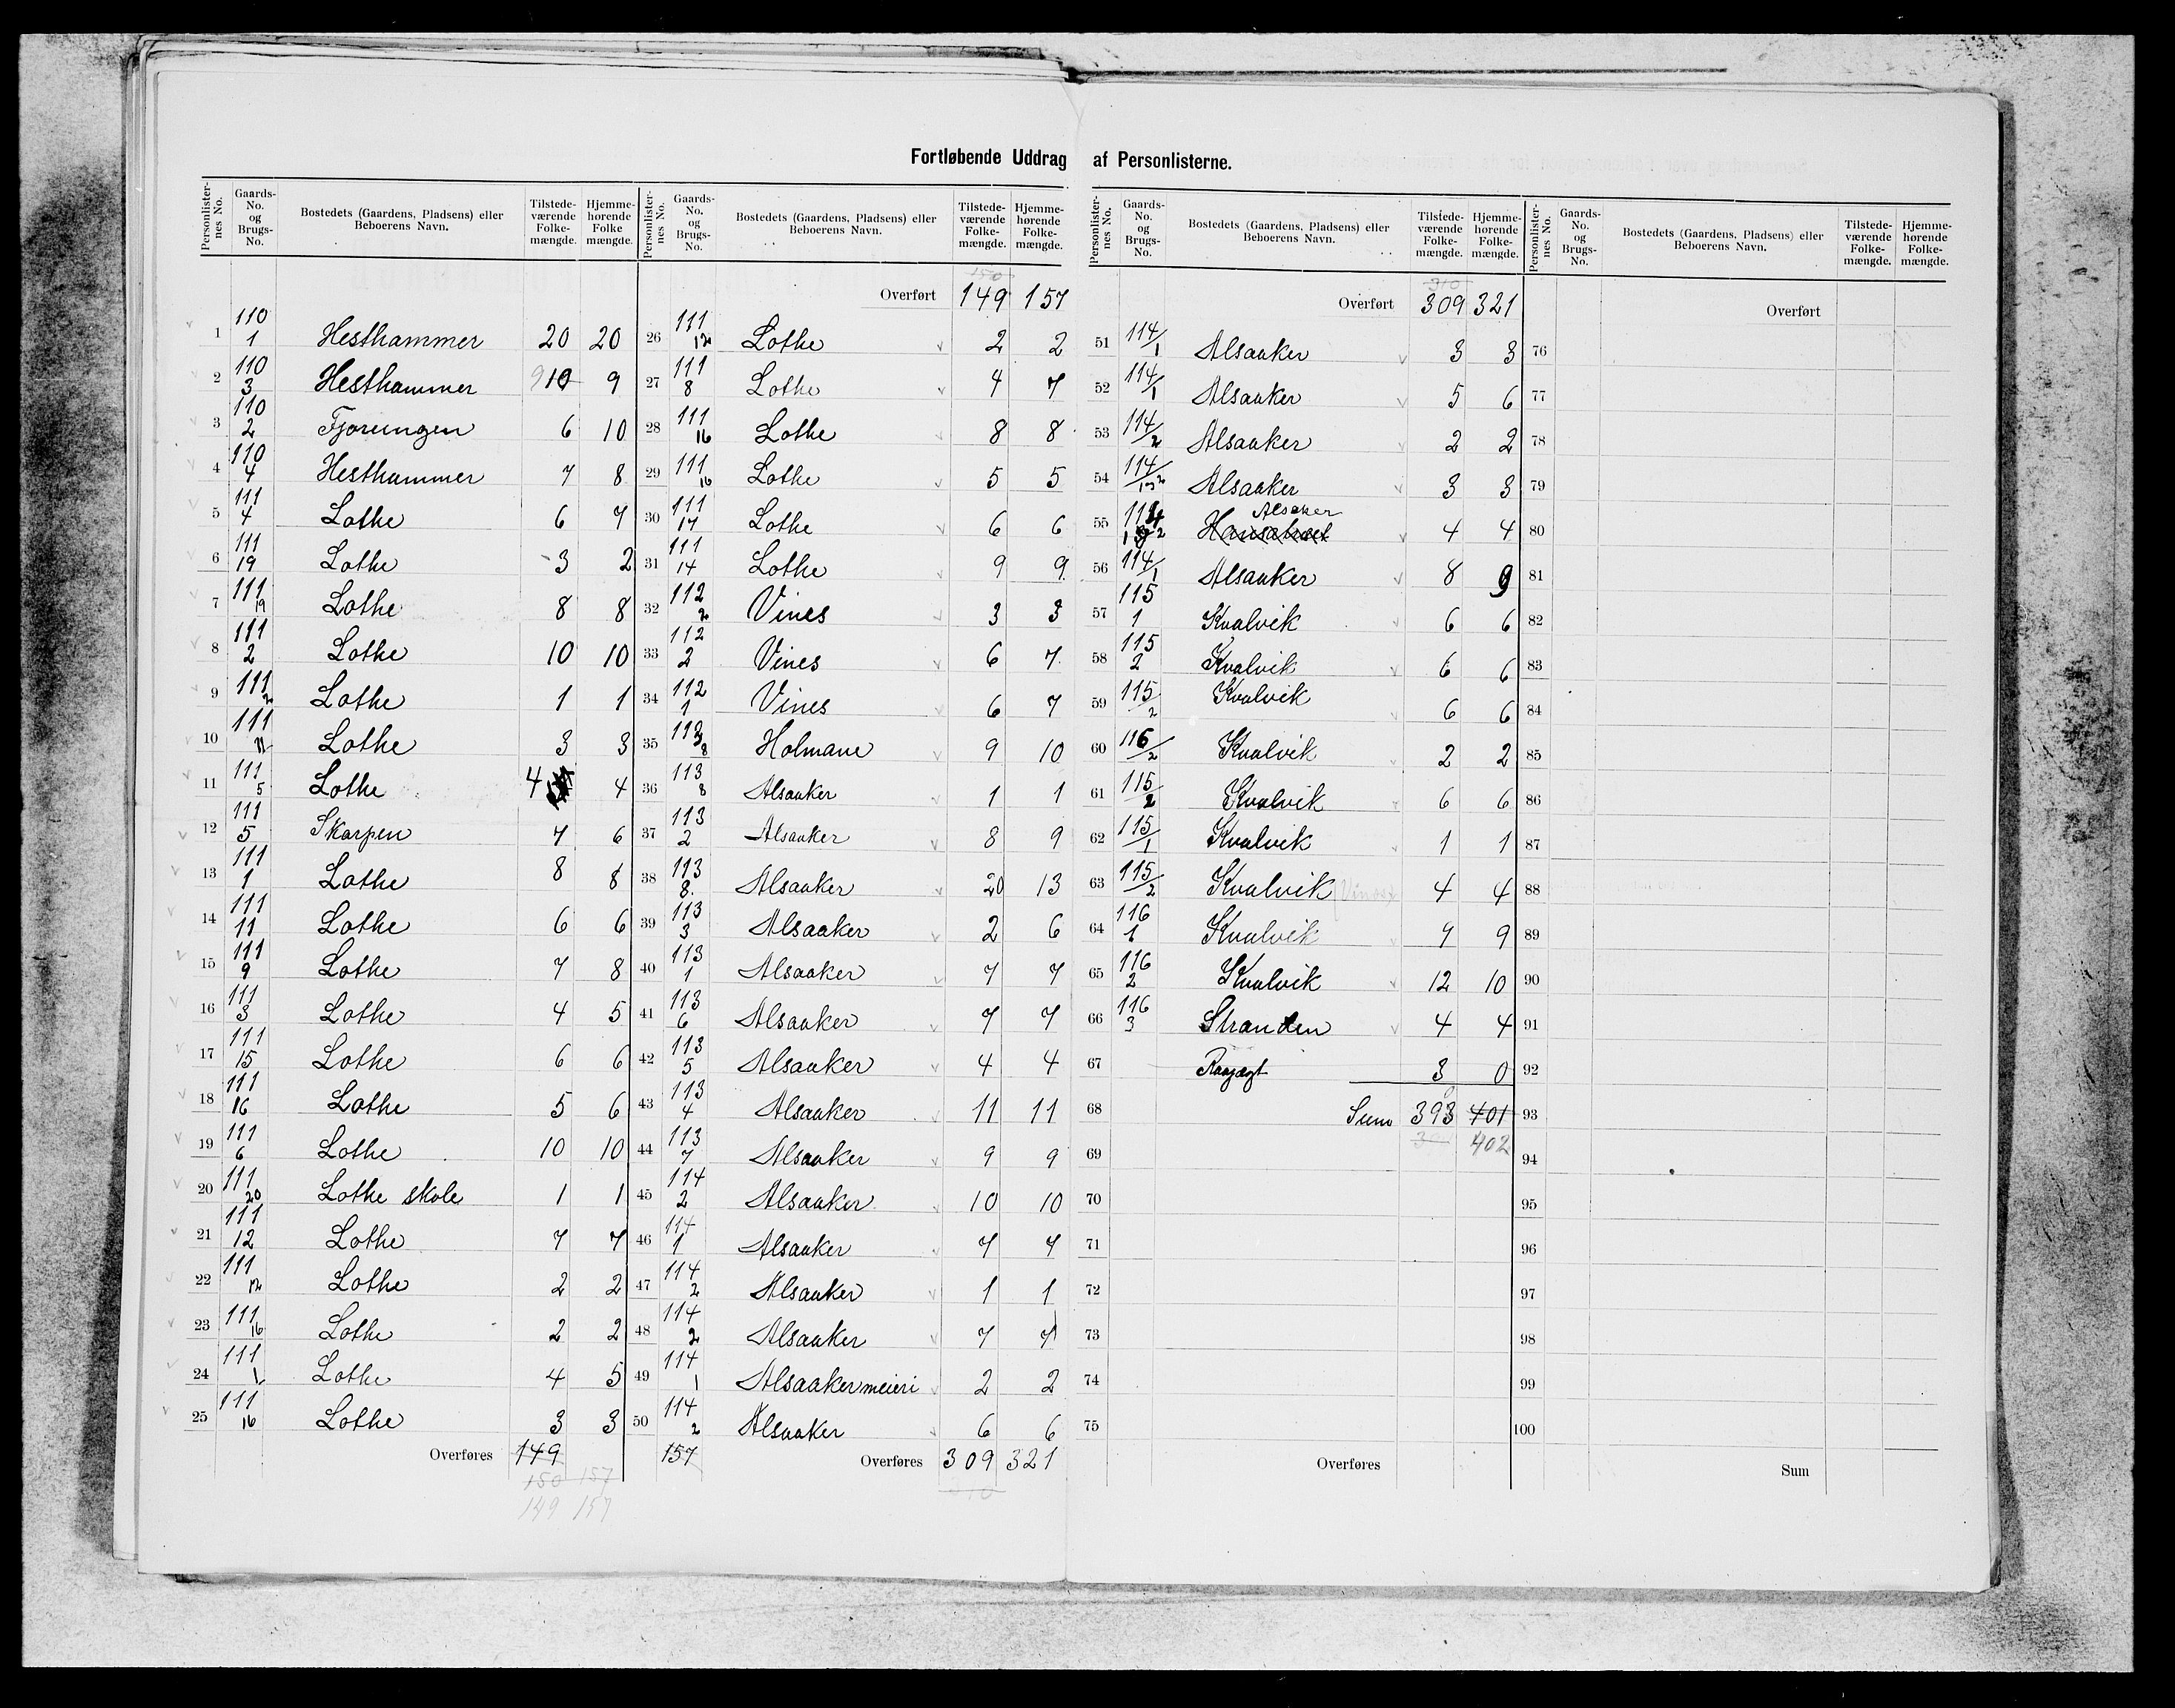 Fortløbende Uddrag af Personlisterne.
Personlisternes No. | Gaards-No. og Brugs-No. | Bostedets (Gaardens, Pladsens) eller Beboerens Navn. | Tilstedeværende Folkemængde. | Hjemmehørende Folkemængde.
1 110/1 Hesthammer 20 20
2 110/3 Hesthammer 9 10 9
3 110/2 Fjoreingen 6 10
4 110/4 Hesthammer 7 8
5 111/4 Lothe 6 7
6 111/19 Lothe 3 2
7 111/19 Lothe 8 8
8 111/2 Lothe 10 10
9 111/2 Lothe 1 1
10 111/11 Lothe 3 3
11 111/5 Lothe 4 4
12 111/5 Skarpen 7 6
13 111/1 Lothe 8 8
14 111/11 Lothe 6 6
15 111/9 Lothe 7 8
16 111/3 Lothe 4 5
17 111/15 Lothe 6 6
18 111/16 Lothe 5 6
19 111/6 Lothe 10 10
20 111/20 Lothe skole 1 1
21 111/12 Lothe 7 7
22 111/12 Lothe 2 2
23 111/16 Lothe 2 2
24 111/1 Lothe 4 5
25 111/16 Lothe 3 3
Overføres 149 157
150 157
149 157
Personlisternes No. | Gaards-No. og Brugs-No. | Bostedets (Gaardens, Pladsens) eller Beboerens Navn. | Tilstedeværende Folkemængde. | Hjemmehørende Folkemængde.
150
Overført 149 157
26 111/12 Lothe 2 2
27 111/8 Lothe 4 7
28 111/16 Lothe 8 8
29 111/16 Lothe 5 5
30 111/17 Lothe 6 6
31 111/14 Lothe 9 9
32 112/2 Vines 3 3
33 112/2 Vines 6 7
34 112/1 Vines 6 7
35 113/8 Holmane 9 10
36 113/8 Alsaaker 1 1
37 113/2 Alsaaker 8 9
38 113/8 Alsaaker 20 13
39 113/3 Alsaaker 2 6
40 113/1 Alsaaker 7 7
41 113/6 Alsaaker 7 7
42 113/5 Alsaaker 4 4
43 113/4 Alsaaker 11 11
44 113/7 Alsaaker 9 9
45 114/2 Alsaaker 10 10
46 114/1 Alsaaker 7 7
47 114/2 Alsaaker 1 1
48 114/2 Alsaaker 7 7
49 114/1 Alsaaker meieri 2 2
50 114/2 Alsaaker 6 6
Overføres 309 321
310
Personlisternes No. | Gaards-No. og Brugs-No. | Bostedets (Gaardens, Pladsens) eller Beboerens Navn. | Tilstedeværende Folkemængde. | Hjemmehørende Folkemængde.
310
Overført 309 321
51 114/1 Alsaaker 3 3
52 114/1 Alsaaker 5 6
53 114/2 Alsaaker 2 2
54 114/2 Alsaaker 3 3
55 114/2 Alsaker 4 4
56 114/1 Alsaaker 8 9
57 115/1 Kvalvik 6 6
58 115/2 Kvalvik 6 6
59 115/2 Kvalvik 6 6
60 116/2 Kvalvik 2 2
61 115/2 Kvalvik 6 6
62 115/1 Kvalvik 1 1
63 115/2 Kvalvik (Vines) 4 4
64 116/1 Kvalvik 9 9
65 116/2 Kvalvik 12 10
66 116/3 Stranden 4 4
67 3 0
68 Sum 393 401
69 402
70
71
72
73
74
75
Overføres
Personlisternes No. | Gaards-No. og Brugs-No. | Bostedets (Gaardens, Pladsens) eller Beboerens Navn. | Tilstedeværende Folkemængde. | Hjemmehørende Folkemængde.
Overført
76
77
78
79
80
81
82
83
84
85
86
87
88
89
90
91
92
93
94
95
96
97
98
99
100
Sum